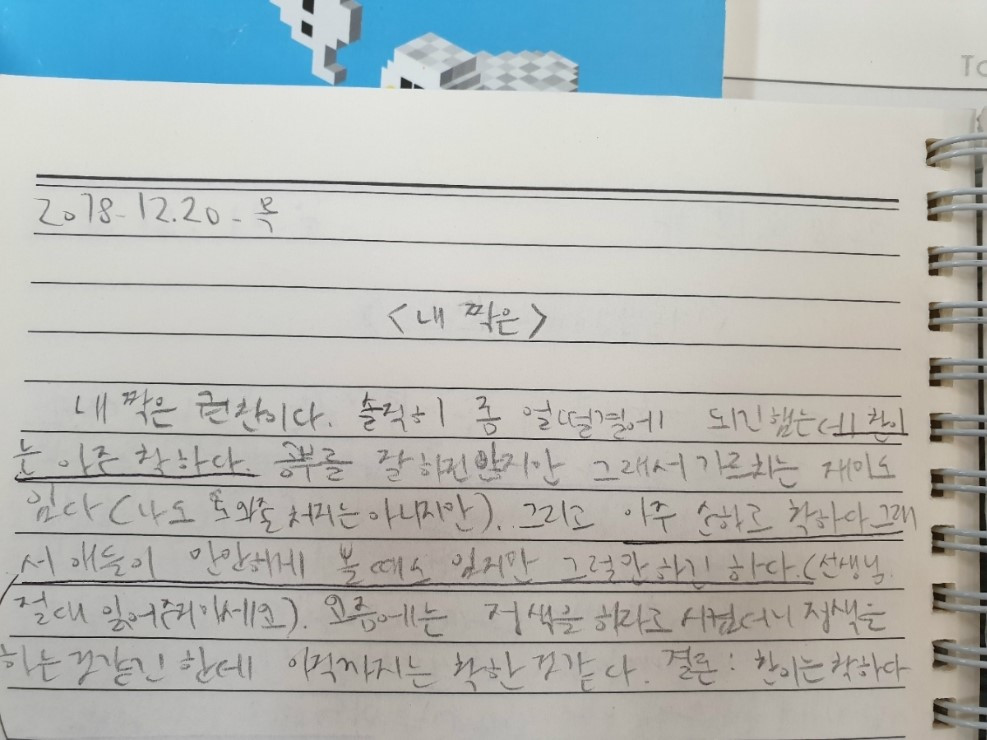 To
2018-12.20-목
<내 짝은>
내 짝은 권찬이다. 솔직히 좀 얼떨결에 되긴했는데 찬이
는 아주 착하다. 공부를 잘하진 않지만 그래서 가르치는 재미도
있다(나도 도와줄 처지는 아니지만). 그리고 아주 순하고 착하다그래
서 애들이 만만하게 볼때도 있지만 그럴만하긴 하다.(선생님
절대 읽어주지마세요). 요즘에는 정색을 하라고 시켰더니 정색을
하는것같긴 한데 아직까지는 착한것같다. 결론: 찬이는착하다